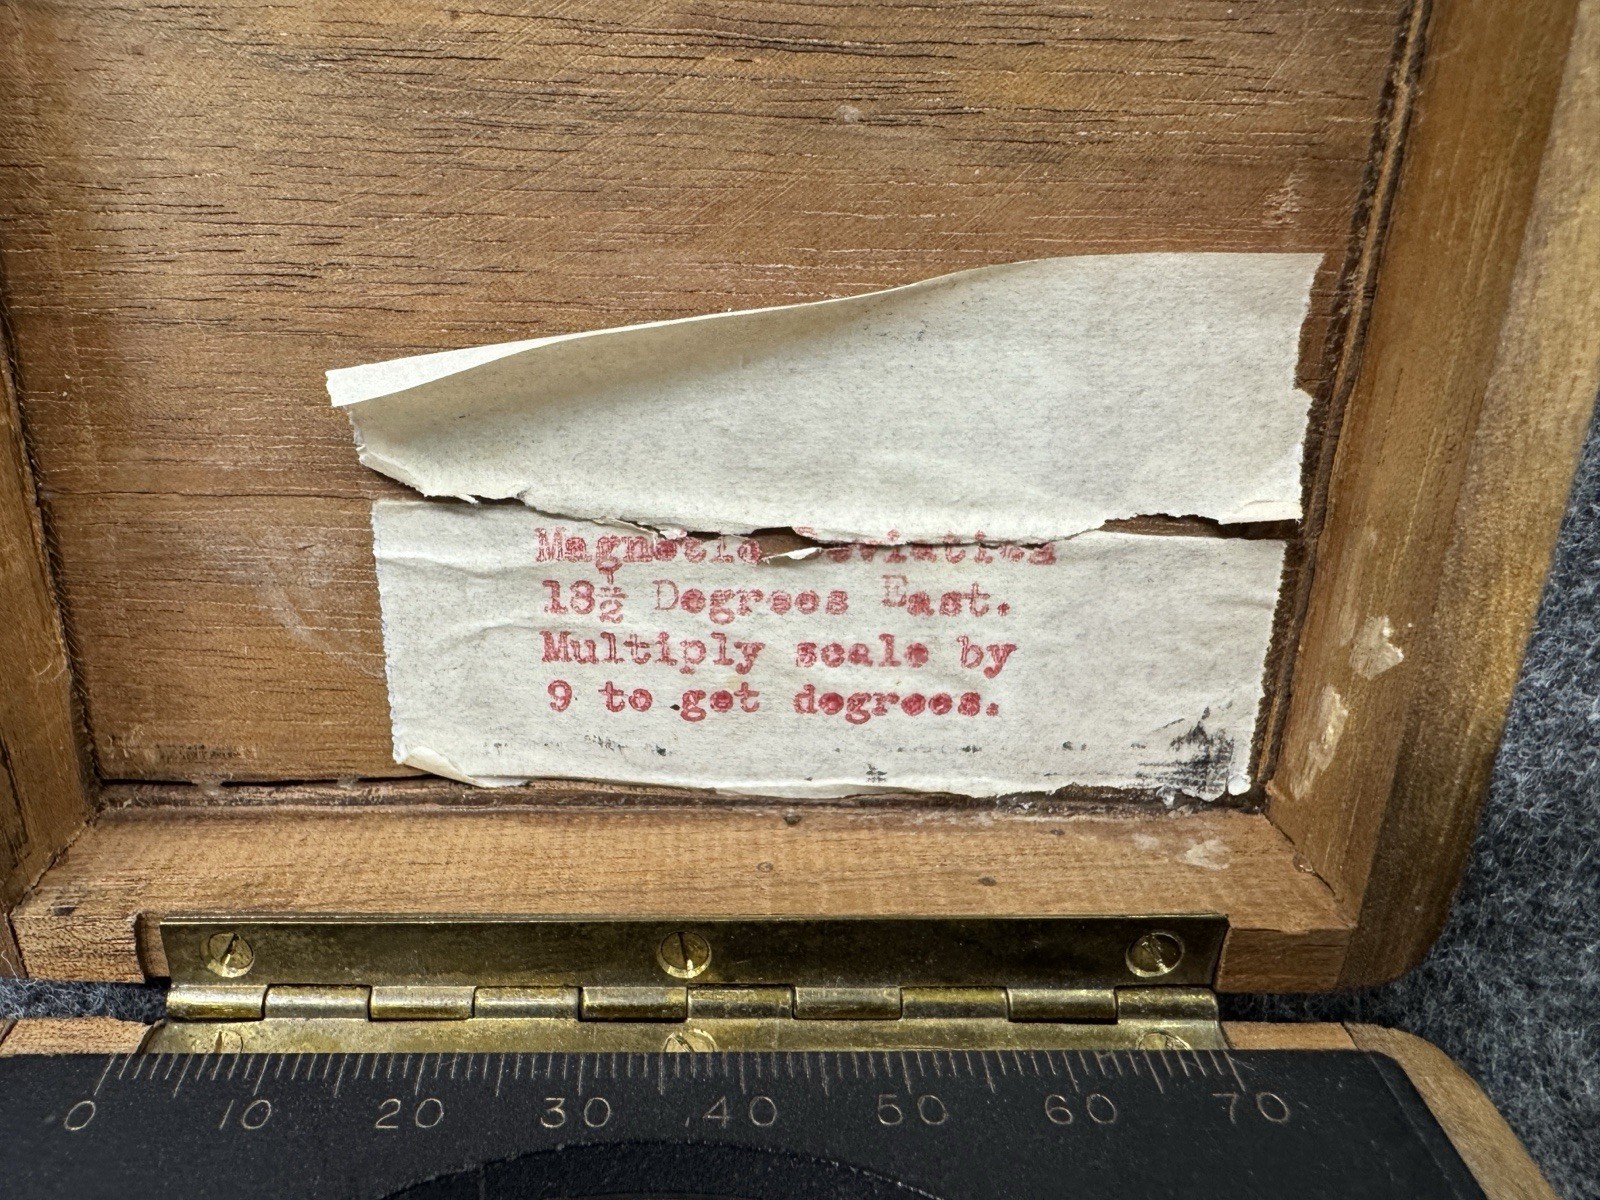 Magnetic
18½ Degrees East.
Multiply scale by
9 to get degrees.
0 10 20 30 40 50 60 70